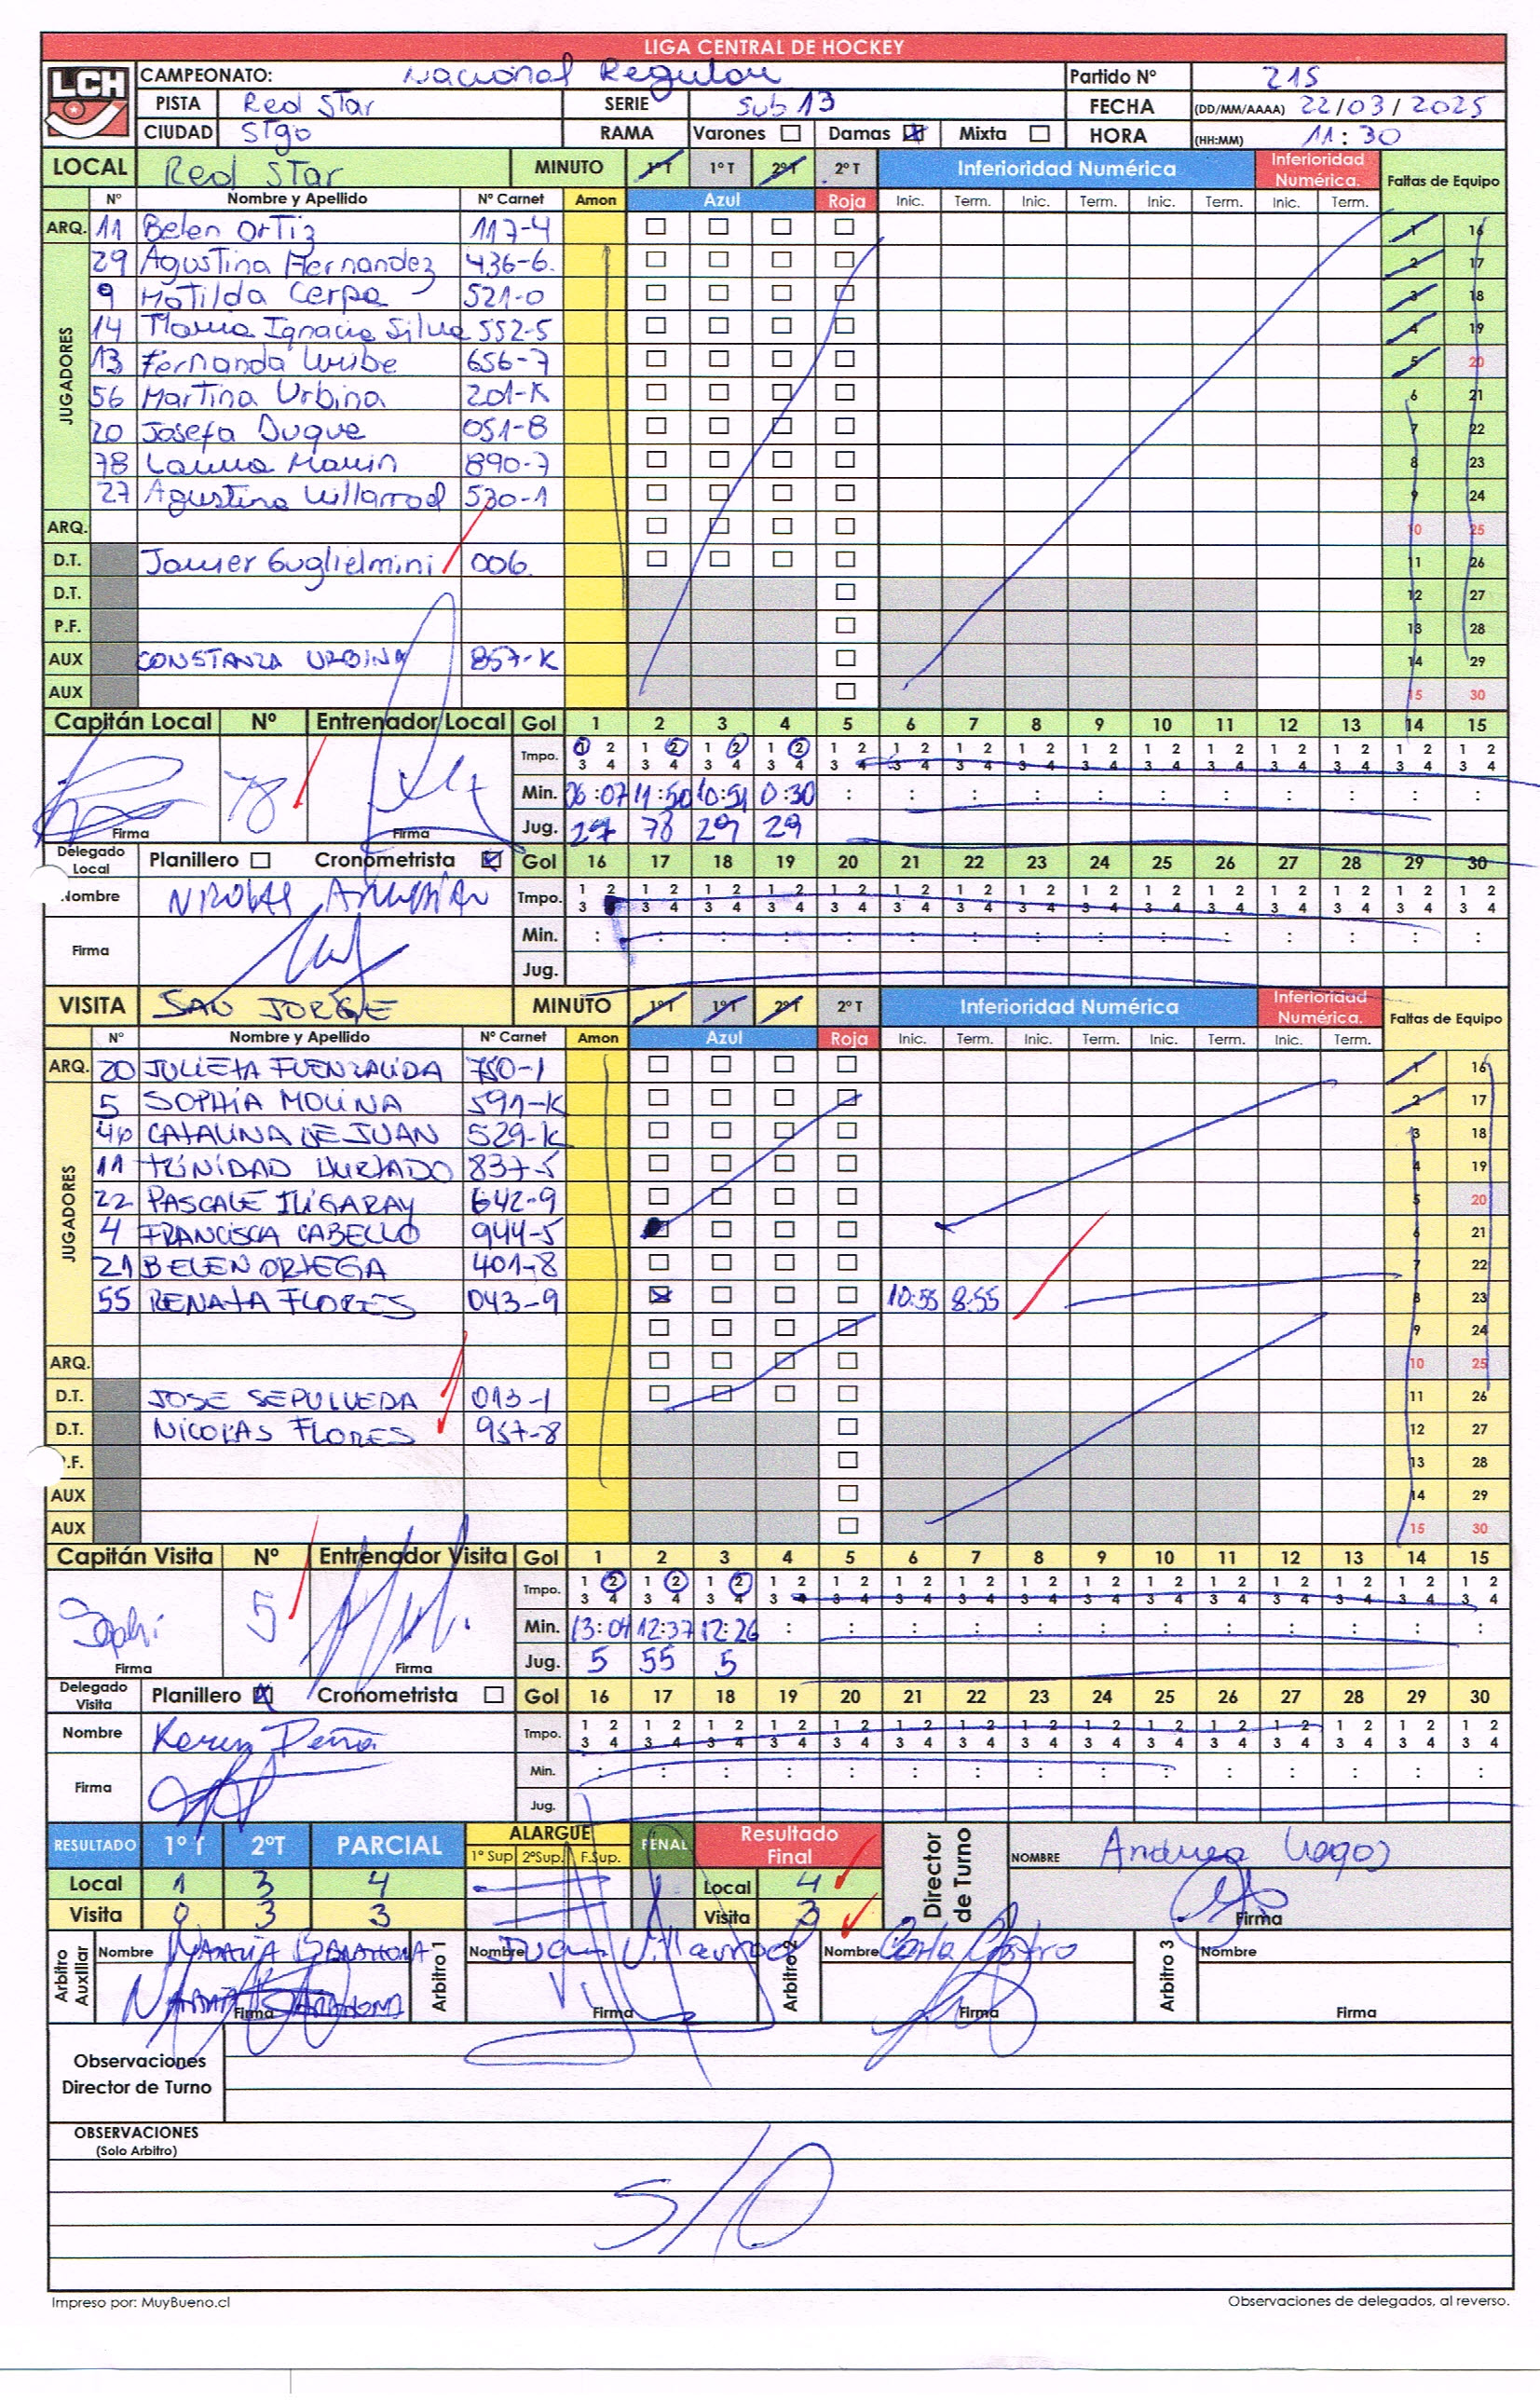 LIGA CENTRAL DE HOCKEY
LCH
CAMPEONATO: Nacional Regular Partido Nº 215
PISTA Red Star SERIE Sub 13 FECHA (DD/MM/AAAA) 22/03/2025
CIUDAD Stgo RAMA Varones Damas Mixta HORA (HH:MM) 11:30
LOCAL Red Star MINUTO 1ºT 1ºT 2ºT 2ºT Inferioridad Numérica Inferioridad Numérica. Faltas de Equipo
Nº Nombre y Apellido Nº Carnet Amon Azul Roja Inic. Term. Inic. Term. Inic. Term. Inic. Term.
ARQ. 11 Belen Ortiz 117-4 1 16
JUGADORES
29 Agustina Hernandez 436-6. 2 17
9 Matilda Cerpa 521-0 3 18
14 Maria Ignacia Silva 552-5 4 19
13 Fernanda Uribe 656-7 5 20
56 Martina Urbina 201-K 6 21
20 Josefa Duque 051-8 7 22
78 Laura Marin 890-7 8 23
27 Agustina Villarroel 530-1 9 24
ARQ. 10 25
D.T. Javier Guglielmini 006. 11 26
D.T. 12 27
P.F. 13 28
AUX CONSTANZA URBINA 857-K 14 29
AUX 15 30
Capitán Local Nº Entrenador Local Gol 1 2 3 4 5 6 7 8 9 10 11 12 13 14 15
Tmpo. 1 2 1 2 1 2 1 2 1 2 1 2 1 2 1 2 1 2 1 2 1 2 1 2 1 2 1 2 1 2
3 4 3 4 3 4 3 4 3 4 3 4 3 4 3 4 3 4 3 4 3 4 3 4 3 4 3 4 3 4
78 Min. 06:07 11:50 10:51 0:30 : : : : : : : : : : :
Firma Firma Jug. 27 78 29 29
Delegado Local Planillero Cronometrista Gol 16 17 18 19 20 21 22 23 24 25 26 27 28 29 30
Nombre Tmpo. 1 2 1 2 1 2 1 2 1 2 1 2 1 2 1 2 1 2 1 2 1 2 1 2 1 2 1 2 1 2
3 4 3 4 3 4 3 4 3 4 3 4 3 4 3 4 3 4 3 4 3 4 3 4 3 4 3 4 3 4
Firma Min. : : : : : : : : : : : : : : :
Jug.
VISITA SAN JORGE MINUTO 1ºT 1ºT 2ºT 2ºT Inferioridad Numérica Inferioridad Numérica. Faltas de Equipo
Nº Nombre y Apellido Nº Carnet Amon Azul Roja Inic. Term. Inic. Term. Inic. Term. Inic. Term.
ARQ. 20 JULIETA FUENZALIDA 750-1 1 16
JUGADORES
5 SOPHIA MOLINA 591-K 2 17
CATALINA DE JUAN 529-K 3 18
11 TRINIDAD HURTADO 837-5 4 19
22 PASCALE 642-9 5 20
4 FRANCISCA CABELLO 944-5 6 21
21 BELEN ORTEGA 401-8 7 22
55 RENATA FLORES 043-9 10:55 8:55 8 23
9 24
ARQ. 10 25
D.T. JOSE SEPULVEDA 013-1 11 26
D.T. NICOLAS FLORES 957-8 12 27
P.F. 13 28
AUX 14 29
AUX 15 30
Capitán Visita Nº Entrenador Visita Gol 1 2 3 4 5 6 7 8 9 10 11 12 13 14 15
Tmpo. 1 2 1 2 1 2 1 2 1 2 1 2 1 2 1 2 1 2 1 2 1 2 1 2 1 2 1 2 1 2
3 4 3 4 3 4 3 4 3 4 3 4 3 4 3 4 3 4 3 4 3 4 3 4 3 4 3 4 3 4
Sophi 5 Min. 13:04 12:37 12:26 : : : : : : : : : : : :
Firma Firma Jug. 5 55 5
Delegado Visita Planillero Cronometrista Gol 16 17 18 19 20 21 22 23 24 25 26 27 28 29 30
Nombre Karen Peña Tmpo. 1 2 1 2 1 2 1 2 1 2 1 2 1 2 1 2 1 2 1 2 1 2 1 2 1 2 1 2 1 2
3 4 3 4 3 4 3 4 3 4 3 4 3 4 3 4 3 4 3 4 3 4 3 4 3 4 3 4 3 4
Firma Min. : : : : : : : : : : : : : : :
Jug.
RESULTADO 1º T 2ºT PARCIAL ALARGUE 1º Sup 2ºSup. F.Sup. PENAL Resultado Final Director de Turno NOMBRE Andrea Lagos
Local 1 3 4 Local 4
Visita 0 3 3 Visita 3 Firma
Arbitro Auxiliar Nombre NATALIA BARAHONA Arbitro 1 Nombre Juan Villarroel Arbitro 2 Nombre Carla Castro Arbitro 3 Nombre
NATALIA BARAHONA Firma Firma Firma Firma
Observaciones
Director de Turno
OBSERVACIONES
(Solo Arbitro)
S/O
Impreso por: MuyBueno.cl Observaciones de delegados, al reverso.